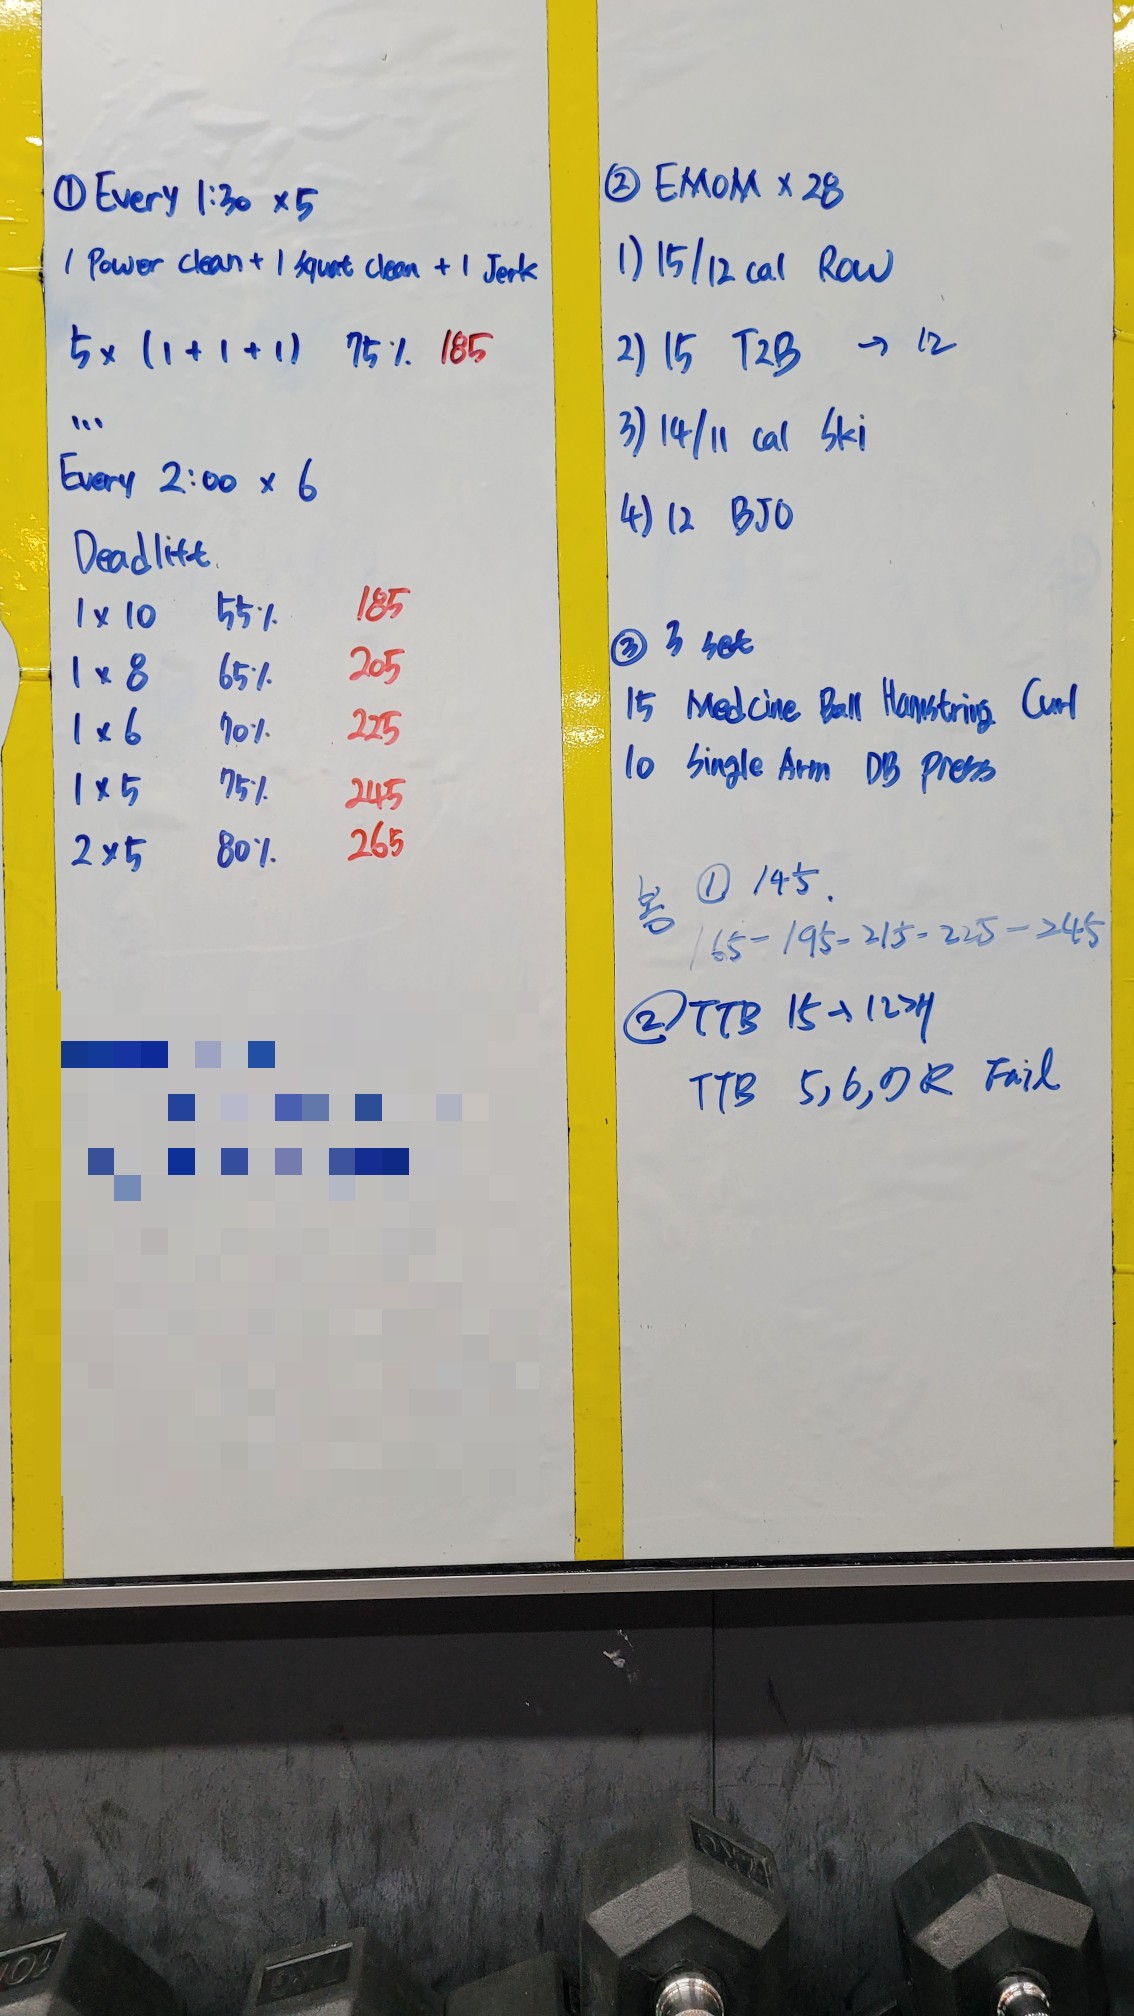 ① Every 1:30 x5
1 Power clean + 1 squat clean + 1 Jerk
5 x (1 + 1 + 1) 75% 185
...
Every 2:00 x 6
Deadlift
1 x 10 55% 185
1 x 8 65% 205
1 x 6 70% 225
1 x 5 75% 245
2 x 5 80% 265
② EMOM x 28
1) 15/12 cal Row
2) 15 T2B → 12
3) 14/11 cal Ski
4) 12 BJO
③ 3 set
15 Medcine Ball Hamstring Curl
10 Single Arm DB press
① 145.
165-195-215-225-245
② TTB 15→12개
TTB 5,6,7 R Fail